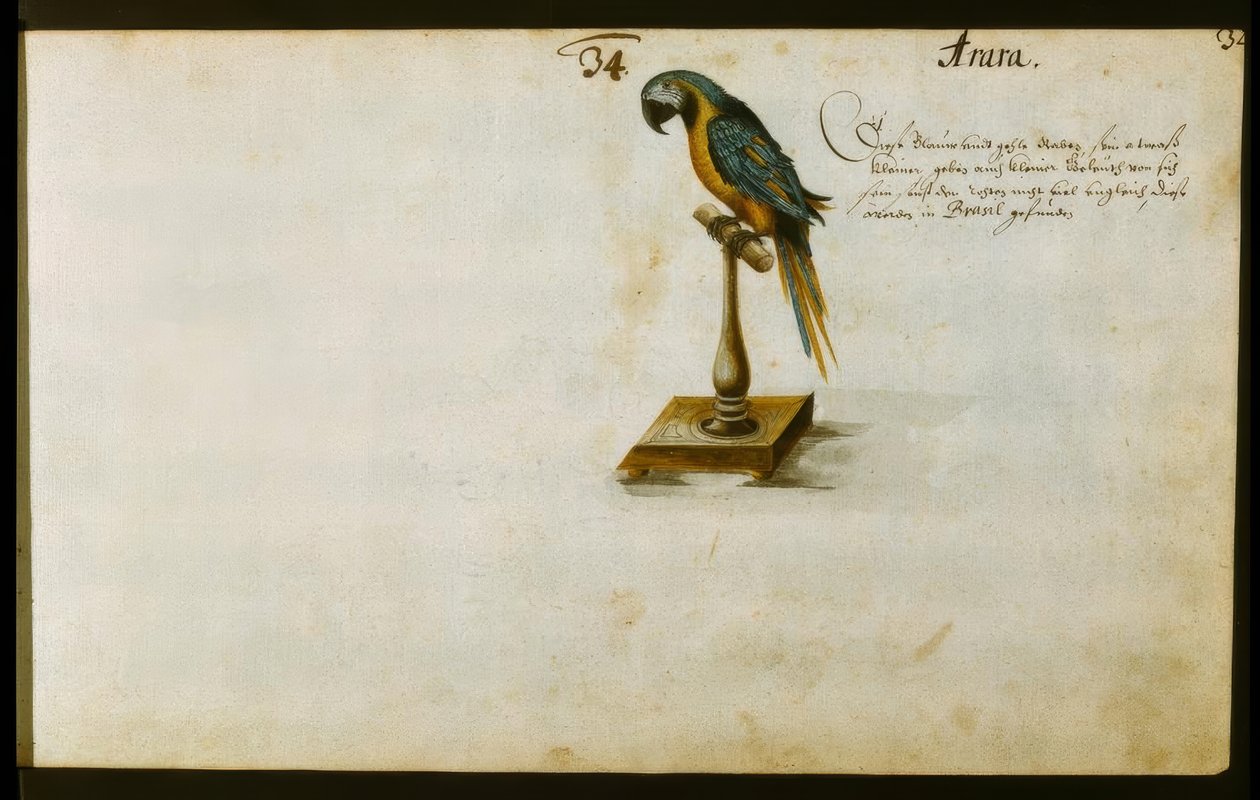 34.
Arara.
34
Diese Blauw undt gehle Raben, sein etwaß
kleiner, geben auch kleiner von sich
sein sonst den nicht viel ungleich, diese
werden in Brasil gefunden